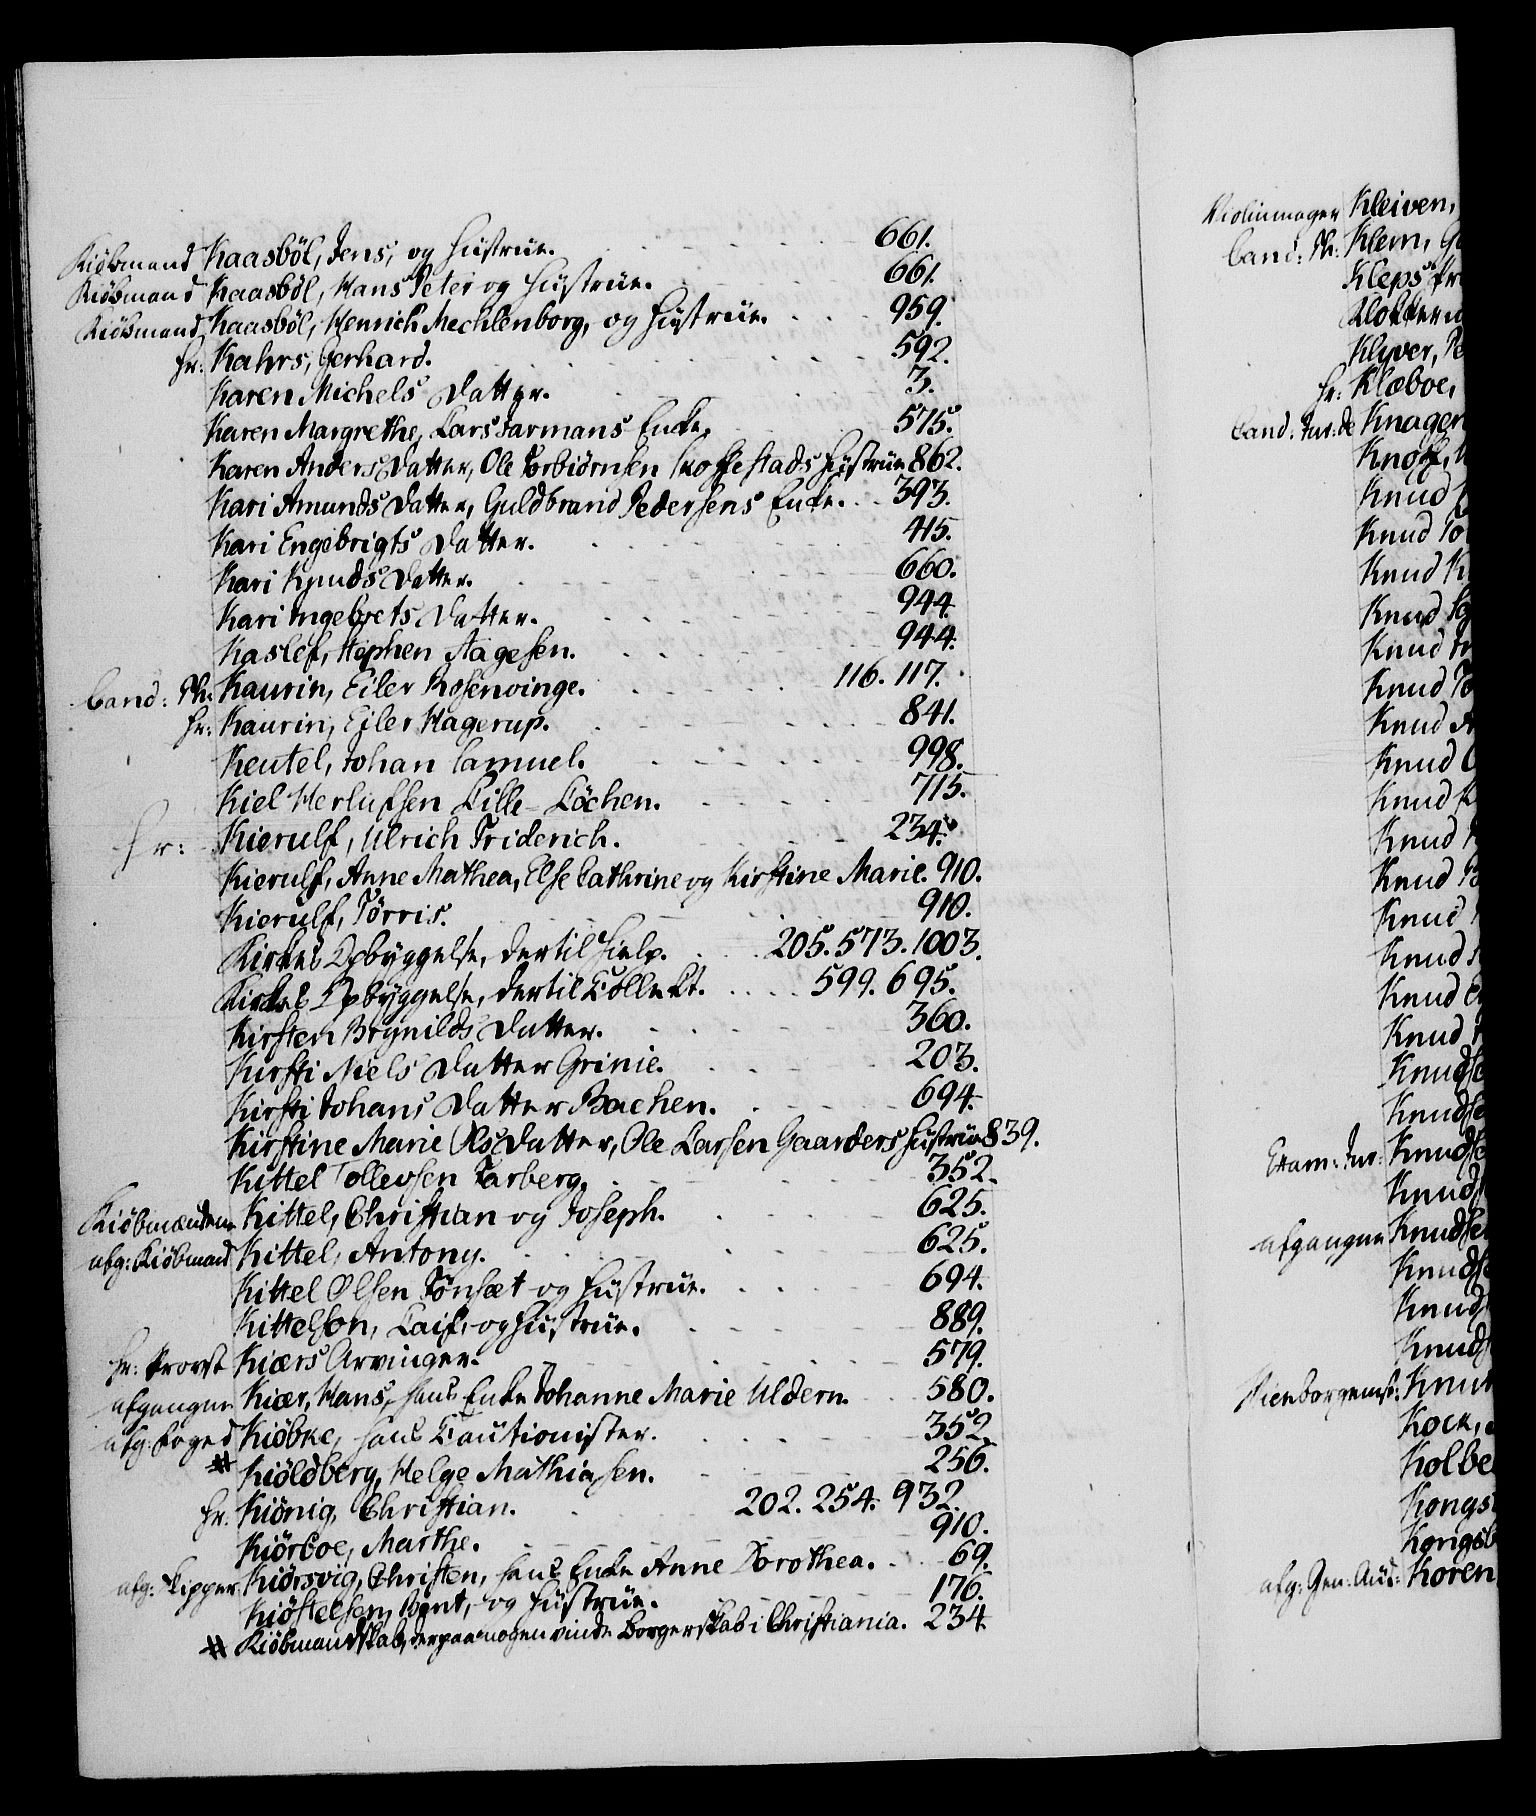 Kiöbmand Kaasböl, Jens, og Hustrue. 661.
Kiöbmand Kaasböl, Hans Peter og Hustrue. 661.
Kiöbmand Kaasböl, Henrich Mechlenborg, og Hustrue. 959.
Hr: Kahrs, Gerhard. 592.
Karen Michels Datter. 3.
Karen Margrethe, Lars Farmans Enke. 575.
Karen Anders Datter, Ole Torbiörnsen Hustrue 862.
Kari Amunds Datter, Guldbrand Pedersens Enke. 393.
Kari Engebrigts Datter. 415.
Kari Knuds Datter. 660.
Kari Ingebrets Datter. 944.
Kaslef, Stephen Aagesen. 944.
Cand: Ph: Kaurin, Eiler Rosenvinge. 116. 117.
Hr: Kaurin, Eiler Hagerup. 841.
Keutel, Johan Samuel. 998.
Kiel Herlufsen Lille-Löchen. 715.
Hr: Kierulf, Ulrich Friderich. 234.
Kierulf, Anne Mathea, Else Cathrine og Kirstine Marie. 910.
Kierulf, Törris. 910.
Kirkes Opbyggelse, dertil Hielp. 205. 573. 1003.
Kirkes Opbyggelse, dertil Collect. 599. 695.
Kirsten Brynilds Datter. 360.
Kirsti Niels Datter Grinie. 203.
Kirsti Johans Datter Bachen. 694.
Kirstine Marie Ols Datter, Ole Larsen Gaarders Hustrue 839.
Kittel Tollevsen Tarberg. 352.
Kiöbmændene Kittel, Christian og Joseph. 625.
afg: Kiöbmand Kittel, Antony. 625.
Kittel Olsen Tönsæt og Hustrue. 694.
Kittelson, Laif, og Hustrue. 889.
Hr: Provst Kiærs Arvinger. 579.
afgangne Kiær, Hans, hans Enke Johanne Marie Uldern. 580.
afg: Foged Kiöbke, hans Cautionister. 352.
# Kiöldberg, Helge Mathiasen. 256.
Hr: Kiönig, Christian. 202. 254. 932.
Kiörboe, Marthe. 910.
afg: Skipper Kiörsvig, Christen, hans Enke Anne Dorothea. 69.
Kiöstelsen, Bent, og Hustrue. 176.
# Kiöbmandskab, derpaa nogen vinde Borgerskab i Christiania. 234
Violinmager Kleiven,
Cand: Ph: Klem,
Kleps
Klyver,
Hr: Klæboe,
Cand: Jur: Knagen
Knoff,
Knud
Knud
Knud
Knud
Knud
Knud
Knud
Knud
Knud
Knud
Knud
Knud
Knud
Knud
Knud
Exam: Jur: Knudse
Knud
afgangne Knudse
Knudse
Knud
Knud
Knu
Kock,
Kolbe
Kongs
Kongsb
afg: Gen: Aud: Koren